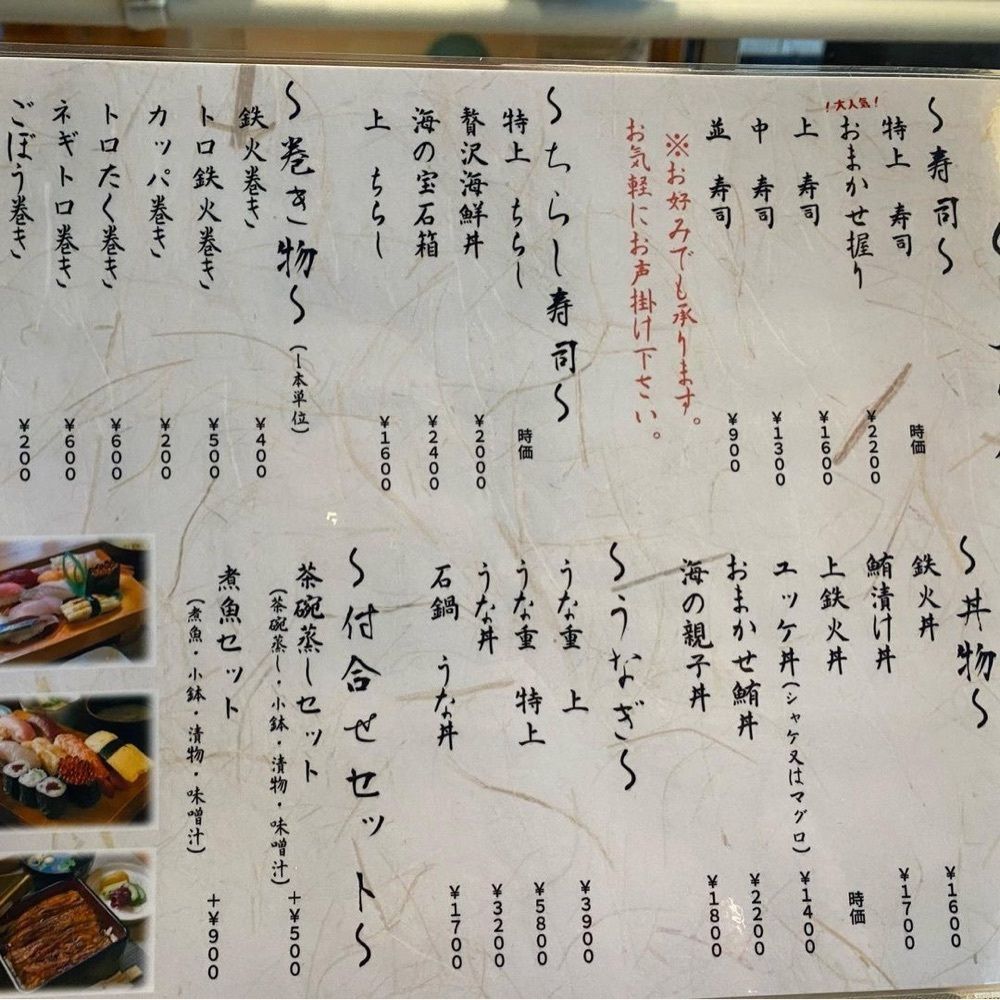 ～寿司～
特上 寿司 時価
！大人気！
おまかせ握り ¥2200
上 寿司 ¥1600
中 寿司 ¥1300
並 寿司 ¥900
※お好みでも承ります。
お気軽にお声掛け下さい。
～ちらし寿司～
特上 ちらし 時価
贅沢海鮮丼 ¥2000
海の宝石箱 ¥2400
上 ちらし ¥1600
～巻き物～（1本単位）
鉄火巻き ¥400
トロ鉄火巻き ¥500
カッパ巻き ¥200
トロたく巻き ¥600
ネギトロ巻き ¥600
ごぼう巻き ¥200
～丼物～
鉄火丼 ¥1600
鮪漬け丼 ¥1700
上鉄火丼 時価
ユッケ丼（シャケ又はマグロ） ¥1400
おまかせ鮪丼 ¥2200
海の親子丼 ¥1800
～うなぎ～
うな重 上 ¥3900
うな重 特上 ¥5800
うな丼 ¥3200
石鍋 うな丼 ¥1700
～付合せセット～
茶碗蒸しセット +¥500
（茶碗蒸し・小鉢・漬物・味噌汁）
煮魚セット +¥900
（煮魚・小鉢・漬物・味噌汁）